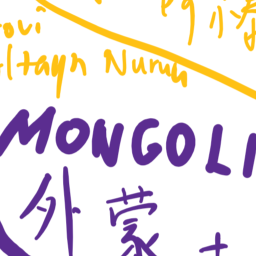 ovi
ltayn Nuruu
MONGOLI
外蒙